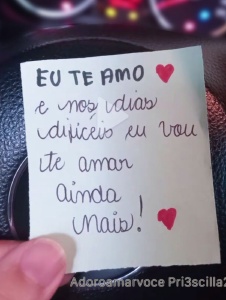 EU TE AMO ♥
e nos dias
difíceis eu vou
te amar
ainda
mais! ♥
Adoroamarvoce Pri3scilla2